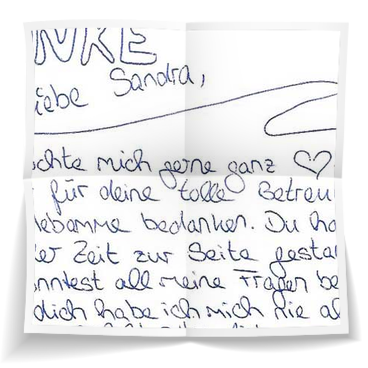 NKE
iebe Sandra,
chte mich gerne ganz
für deine tolle Betreu
ebamme bedanken. Du ha
er Zeit zur Seite gesta
nntest all meine Fragen be
dich habe ich mich nie al